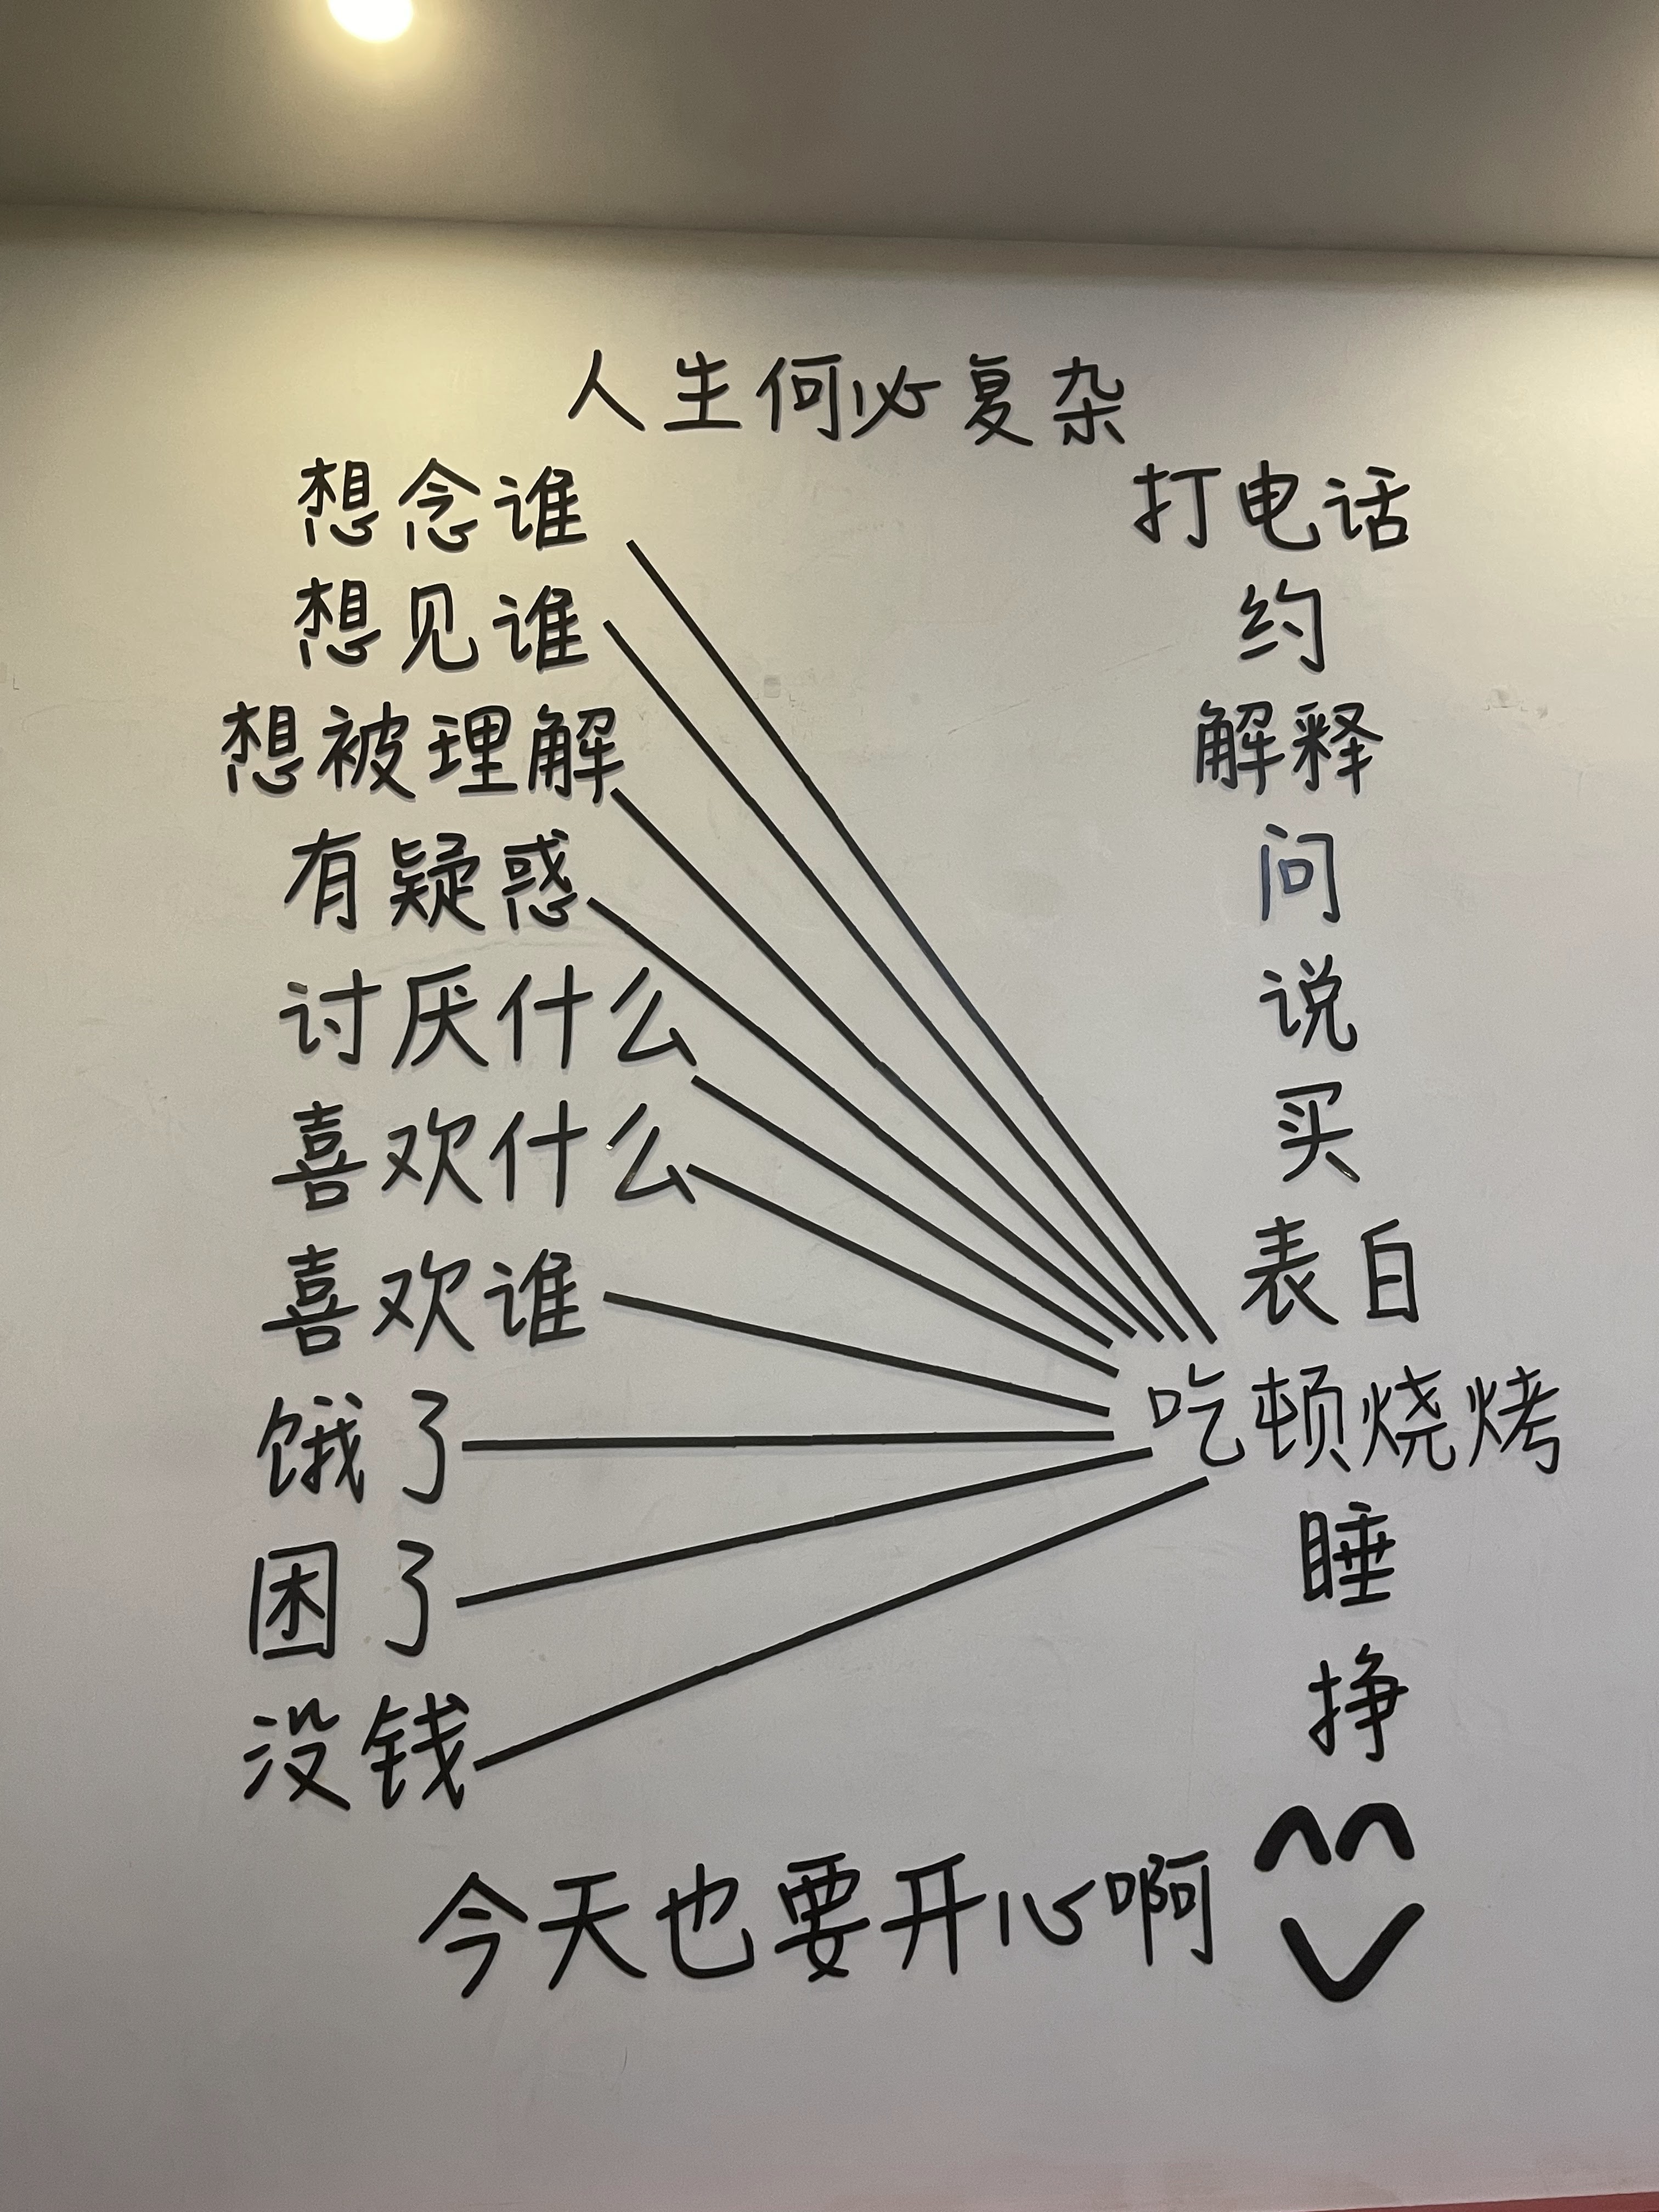 人生何必复杂
想念谁 打电话
想见谁 约
想被理解 解释
有疑惑 问
讨厌什么 说
喜欢什么 买
喜欢谁 表白
饿了 吃顿烧烤
困了 睡
没钱 挣
今天也要开心啊